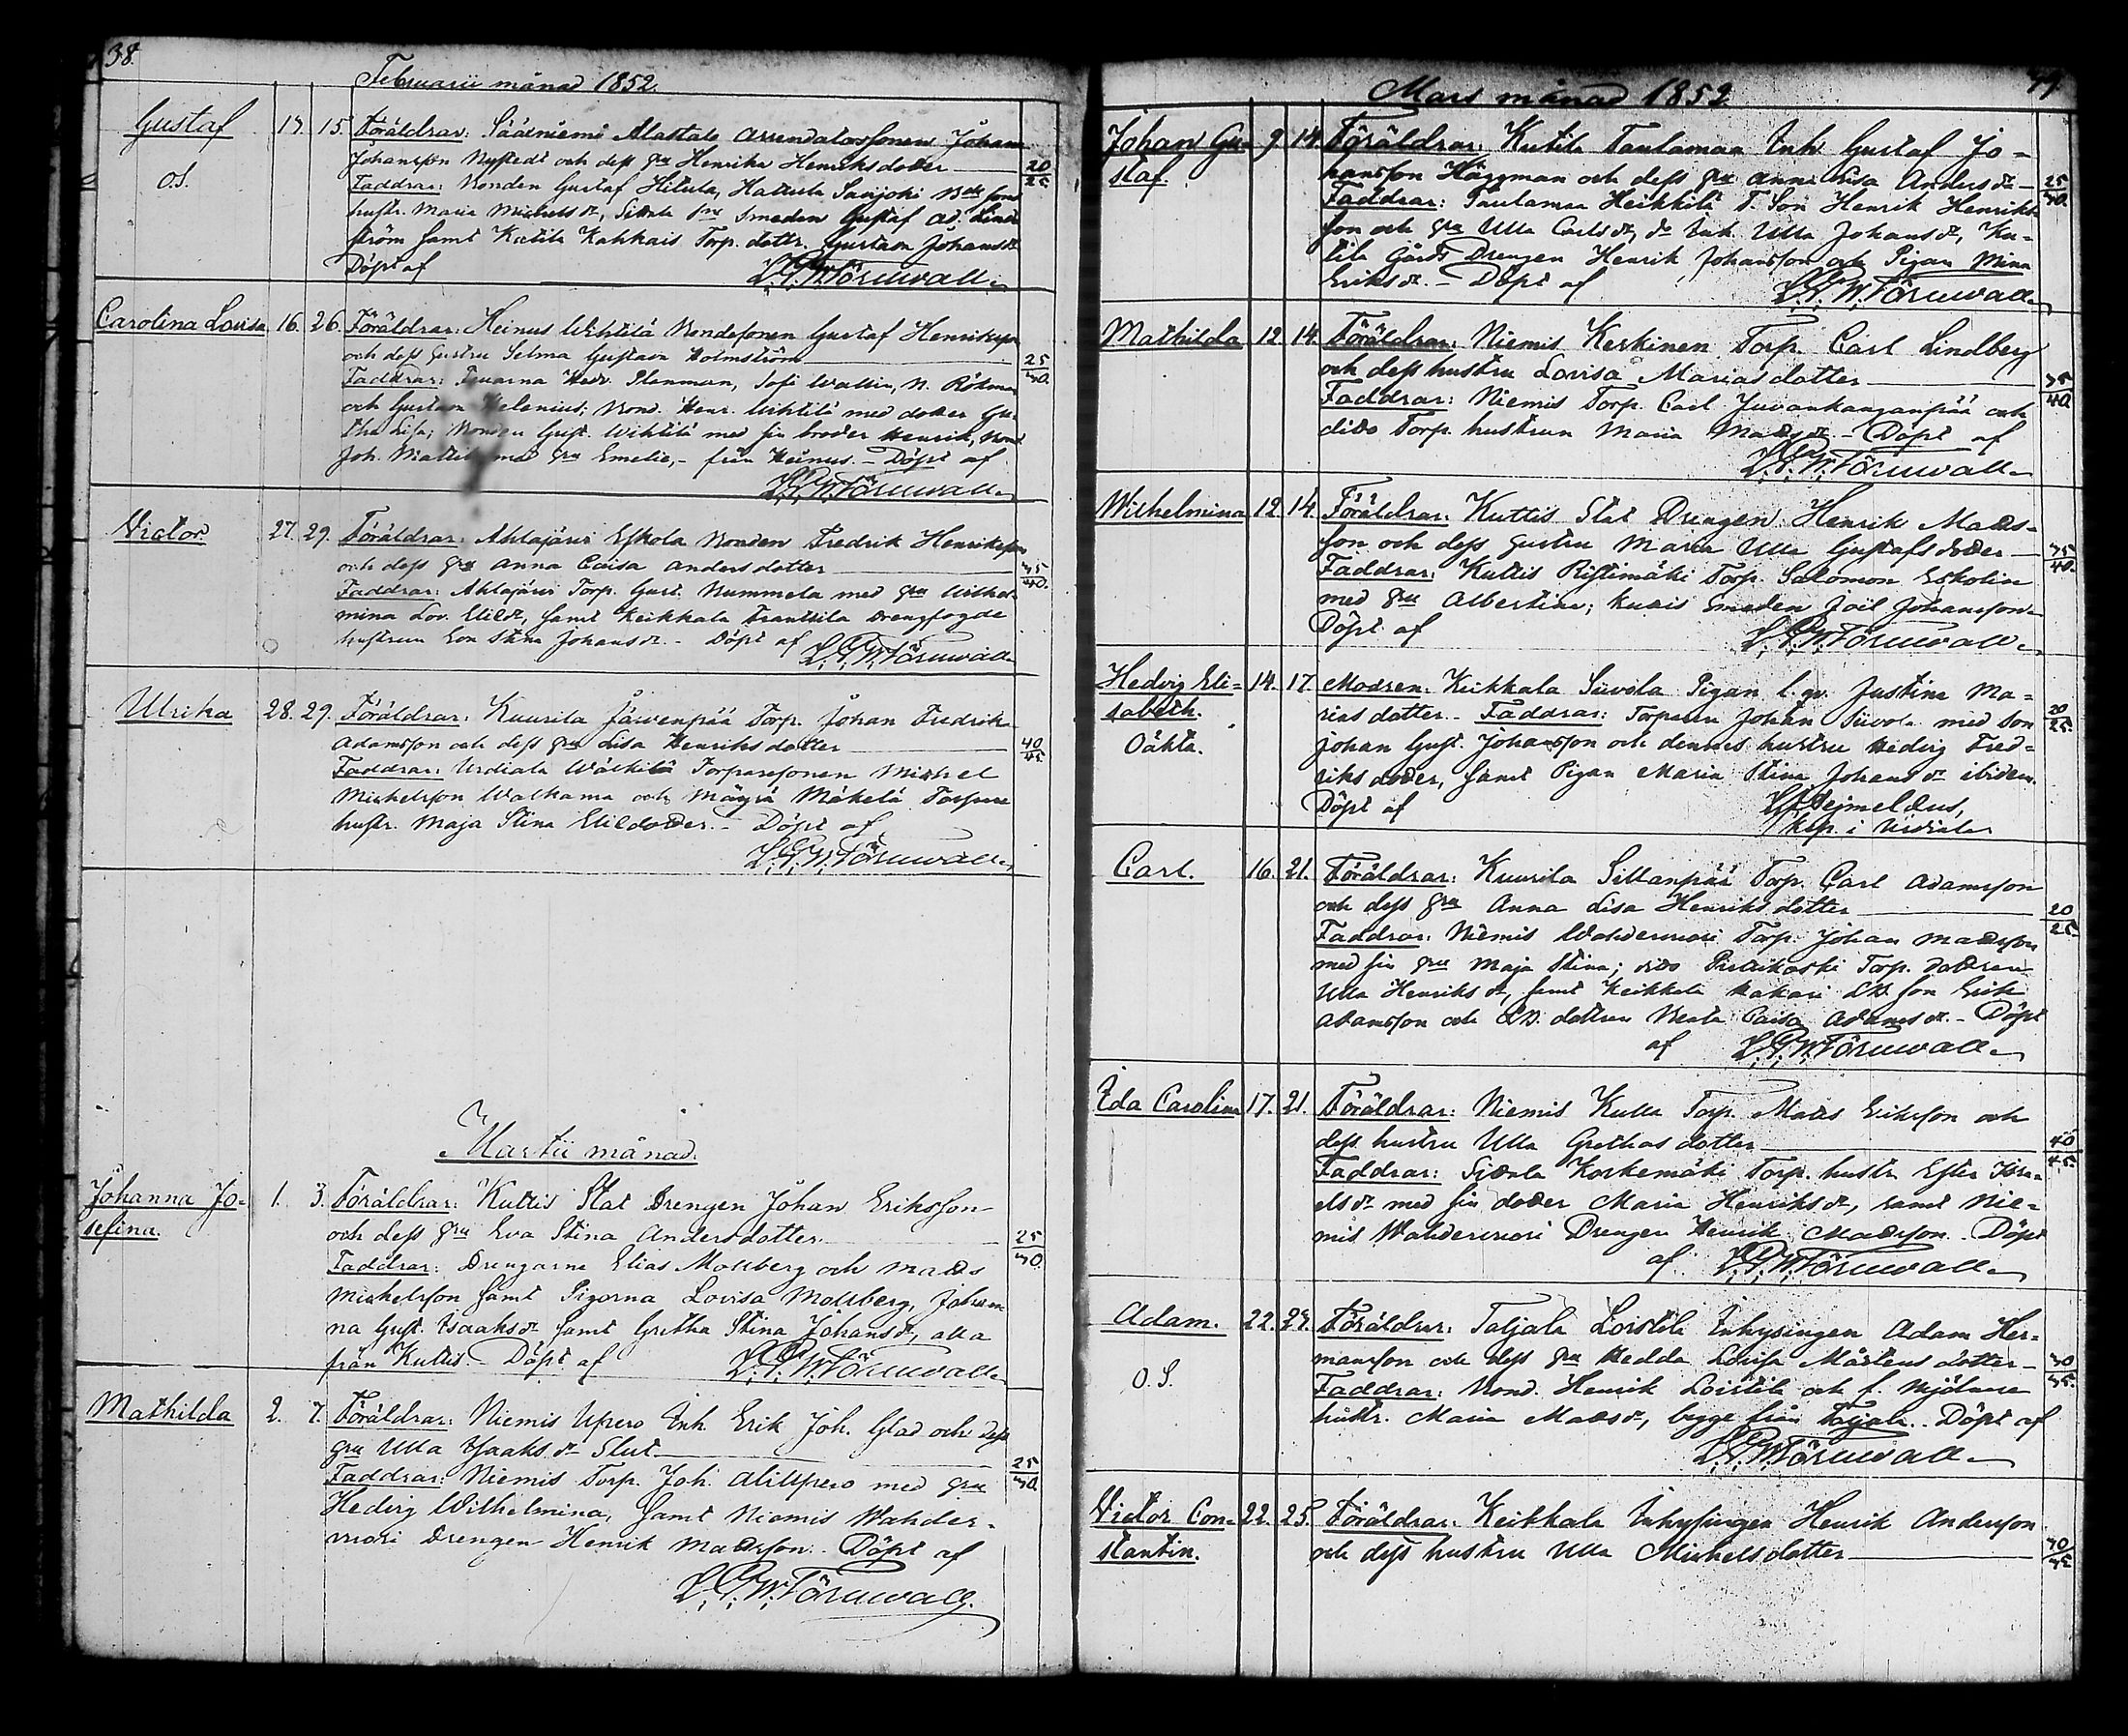 38.
Februarii månad 1852.
Gustaf 14. 15. Föräldrar: Sääxniemi Alastalo Arrendatorssonen Johan
Johansson Nystedt och dess hu Henrika Henriksdotter 20/25
O.S. Faddrar: Bonden Gustaf Hitula, Hattula
hustr. Maria Michelsdr, Smeden Gustaf Ad. Lind-
ström samt Kutila Kahkais Torp. dottr. Gustava Johansdr
Döpt af L.G.W. Törnwall
Carolina Lovisa 16. 26. Föräldrar: Heinus Wihtilä Bondesonen Gustaf Henriksson
och dess hustru Selma Gustava Holmström 25/30.
Faddrar: Fruarna Hedv. Planman, Sofi Wallin,
och Gustava Helenius; Bond. Henr. Wihtilä med dotter Gre-
tha Lisa; Bonden Gust. Wihtilä med sin broder Henrik, Bond
Joh. Mattila med hu Emelie, från Heinus. Döpt af
L.G.W. Törnwall
Victor 27. 29. Föräldrar: Ahlajärvi Eskola Bonden Fredrik Henriksson
och dess hu Anna Caisa Andersdotter 35/40.
Faddrar: Ahlajärvi Torp. Gust. Nummela med hu Wilhel-
mina Lov. Elildr, samt Keikkala Franttila drengfogde
hustrun Eva Stina Johansdr Döpt af L.G.W. Törnwall
Ulrika 28. 29. Föräldrar: Kuurila Järvenpää Torp. Johan Fredrik
Adamsson och dess hu Lisa Henriksdotter 40/45
Faddrar: Urdiala Wälkilä Torparesonen Michel
Michelsson Walkama och Mäkelä Torpare
hustr. Maja Stina Elildotter. Döpt af
L.G.W. Törnwall
Martii månad.
Johanna Jo- 1. 3. Föräldrar: Kuttis Stat Drengen Johan Eriksson
sefina. och dess hu Eva Stina Andersdotter 25/30.
Faddrar: Drengarne Elias Mollberg och Matts
Michelsson samt Pigorna Lovisa Mollberg, Johan-
na Gust. Isaaksdr samt Gretha Stina Johansdr, alla
från Kuttis. Döpt af L.G.W. Törnwall
Mathilda 2. 7. Föräldrar: Niemis Upero Inh. Erik Joh. Glad och dess
hu Ulla Isaaksdr Slut 25/30.
Faddrar: Niemis Torp. Joh. Aliupero med hu
Hedvig Wilhelmina, samt Niemis Wahder-
vuori Drengen Henrik Mattsson. Döpt af
L.G.W. Törnwall.
Mars månad 1852
Johan Gu- 9 14. Föräldrar: Kutila Tautamaa Inh. Gustaf Jo-
staf. hansson Häggman och dess hu Anna Lisa Andersdr 25/30.
Faddrar: Tautamaa Heikkilä T. Son Henrik Henriks-
son och hu Ulla Carlsdr, do Inh. Ulla Johansdr, Ku-
tila Gårds Drengen Henrik Johansson och Pigan Mina
Eriksdr. Döpt af L.G.W. Törnwall
Mathilda 12 14. Föräldrar: Niemis Kerkinen Torp. Carl Lindberg
och dess hustru Lovisa Mariasdotter 35/40.
Faddrar: Niemis Torp. Carl Juvankanganpää och
dito Torp. hustrun Maria Mattsdr. Döpt af
L.G.W. Törnwall
Wilhelmina 12. 14. Föräldrar: Kuttis Stat Drengen Henrik Matts-
son och dess hustru Maria Ulla Gustafsdotter 35/40.
Faddrar: Kuttis Ristimäki Torp. Salomon Eskolin
med hu Albertina; Kuttis Smeden Joël Johansson
Döpt af L.G.W. Törnwall
Hedvig Eli- 14. 17. Modren: Keikkala Siivola Pigan l. qv. Justina Ma-
sabeth. riasdotter. Faddrar: Torparen Johan Siivola med son 20/25.
Oäkta. Johan Gust. Johansson och dennes hustru Hedvig Fred-
riksdotter, samt Pigan Maria Stina Johansdr ibidem.
Döpt af Hejmeldus,
i Urdiala
Carl. 16. 21. Föräldrar: Kuurila Sillanpää Torp. Carl Adamsson
och dess hu Anna Lisa Henriksdotter 20/25
Faddrar: Niemis Wahdervuori Torp. Johan Mattsson
med sin hu Maja Stina; dito Torp. dottren
Ulla Henriksdr, samt Keikkala Son Erik
Adamsson och dottren Beata Caisa Adamsdr. Döpt
af L.G.W. Törnwall
Ida Carolina 17. 21. Föräldrar: Niemis Kulla Torp. Matts Eriksson och
dess hustru Ulla Grethasdotter 40/45.
Faddrar: Korkemäki Torp. hustr. Ester Isra-
elsdr med sin dotter Maria Henriksdr, samt Nie-
mis Wahdervuori Drengen Henrik Mattsson. Döpt
af L.G.W. Törnwall
Adam. 22. 24. Föräldrar: Taljala Loistila Inhysingen Adam Her-
mansson och dess hu Hedda Lovisa Mårtensdotter 30/35.
O.S. Faddrar: Bond. Henrik Loistila och f. Mjölnare
hustr. Maria Mattsdr, begge från Taljala. Döpt af
L.G.W. Törnwall
Victor Con- 22. 25. Föräldrar: Keikkala Inhysingen Henrik Andersson
stantin. och dess hustru Ulla Michelsdotter 30/35